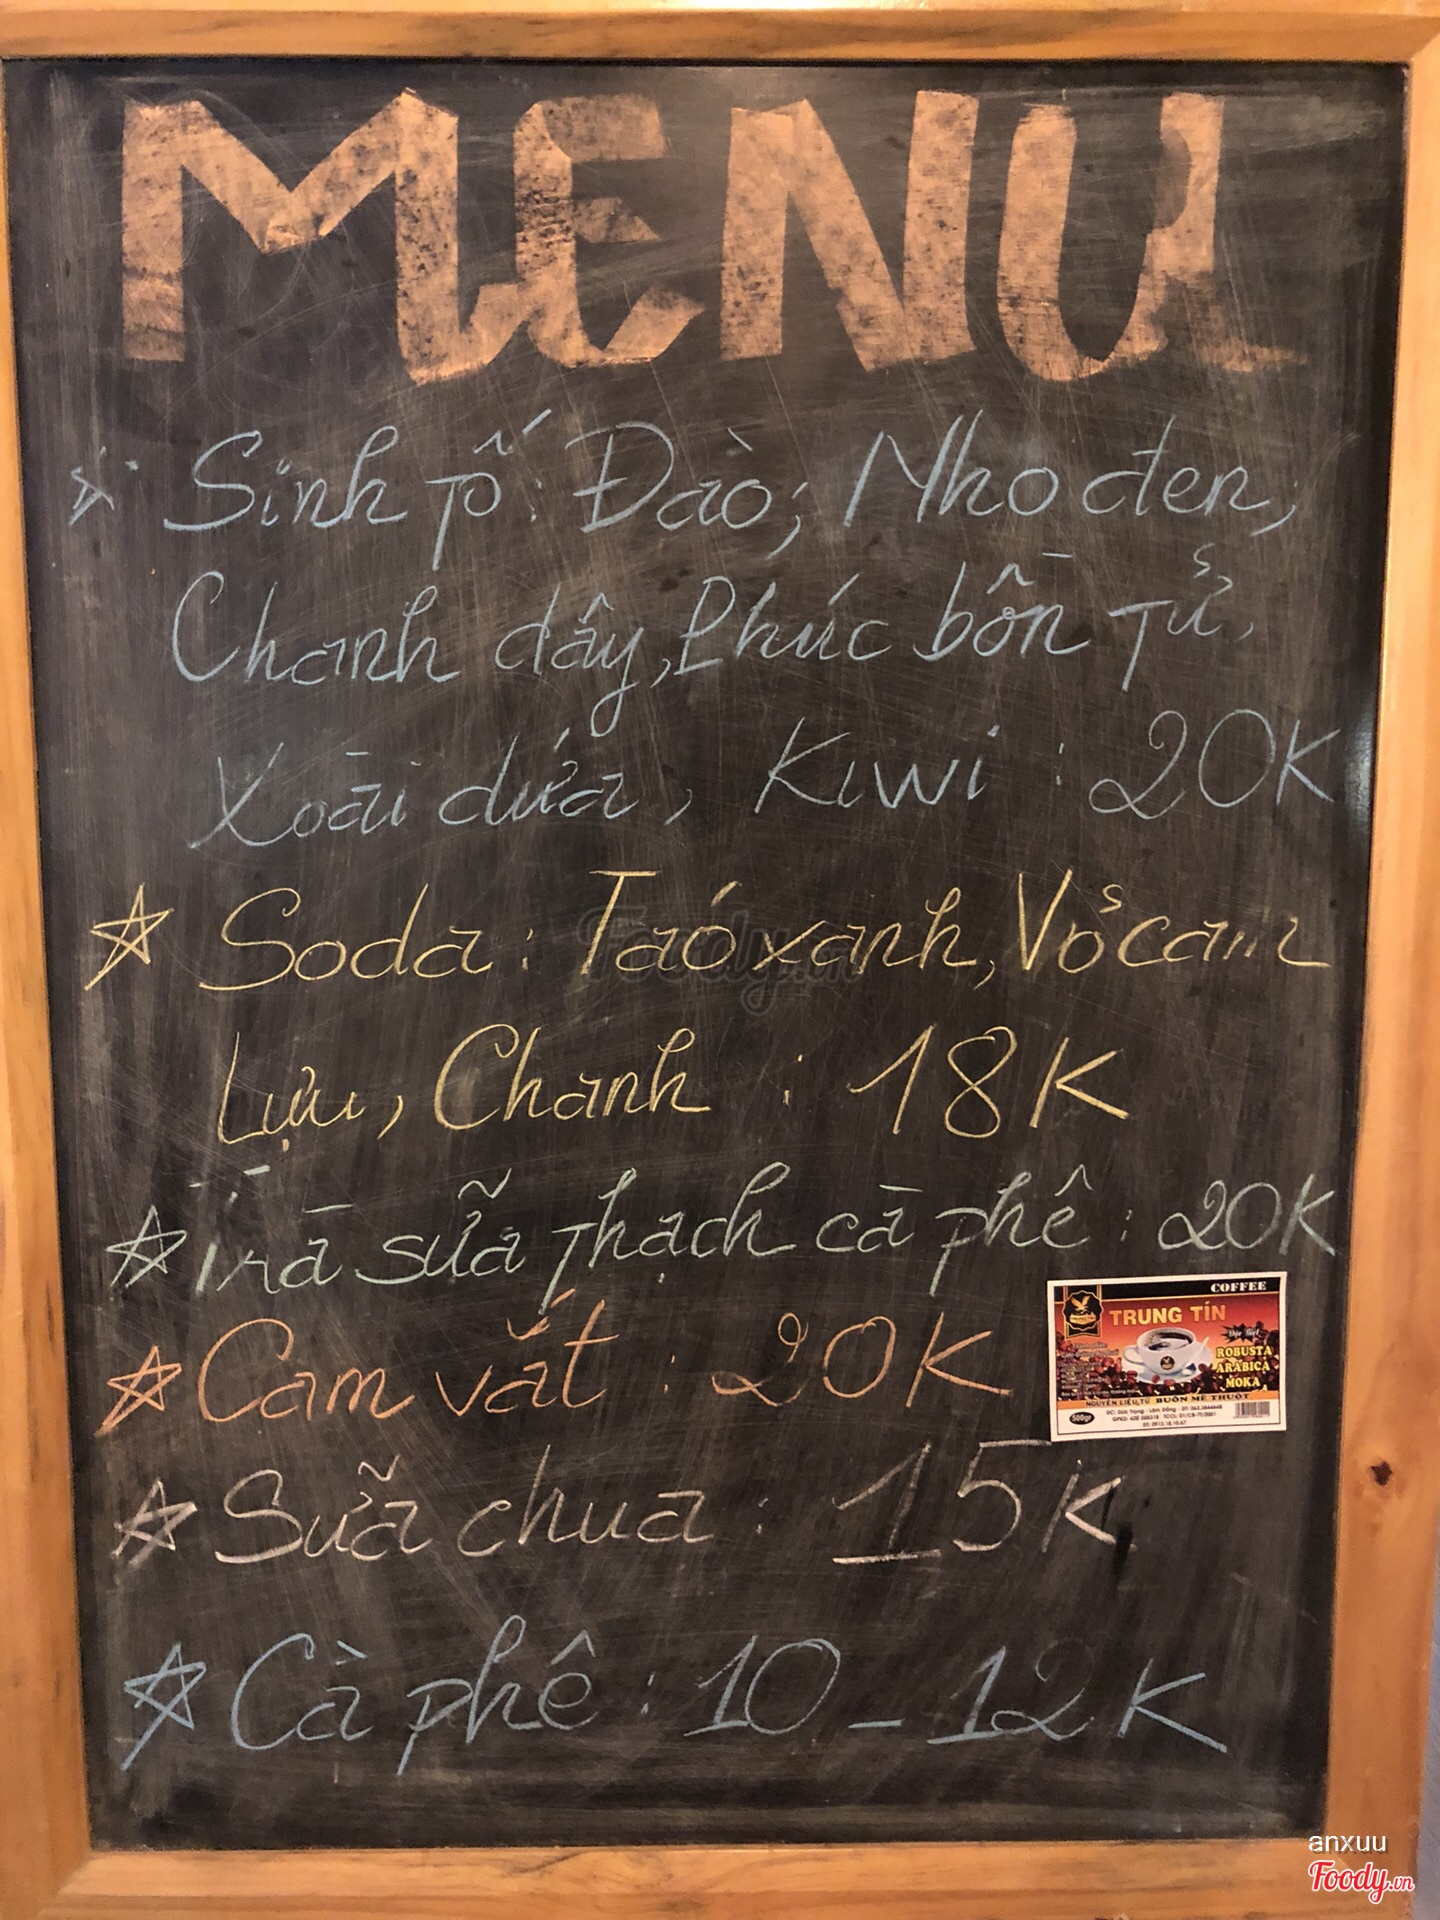 MENU
Sinh tố: Đào, Nho đen,
Chanh dây, Phúc bồn tử,
Xoài dứa, Kiwi : 20K
Soda : Táo xanh, Vỏ cam
Lựu, Chanh : 18K
Trà sữa thạch cà phê : 20K
COFFEE
TRUNG TÍN
ROBUSTA
ARABICA
MOKA
NGUYÊN LIỆU TỪ BUÔN MÊ THUỘT
500gr
Cam vắt : 20K
Sữa chua : 15K
Cà phê : 10 - 12K
Foody.vn
anxuu
Foody.vn